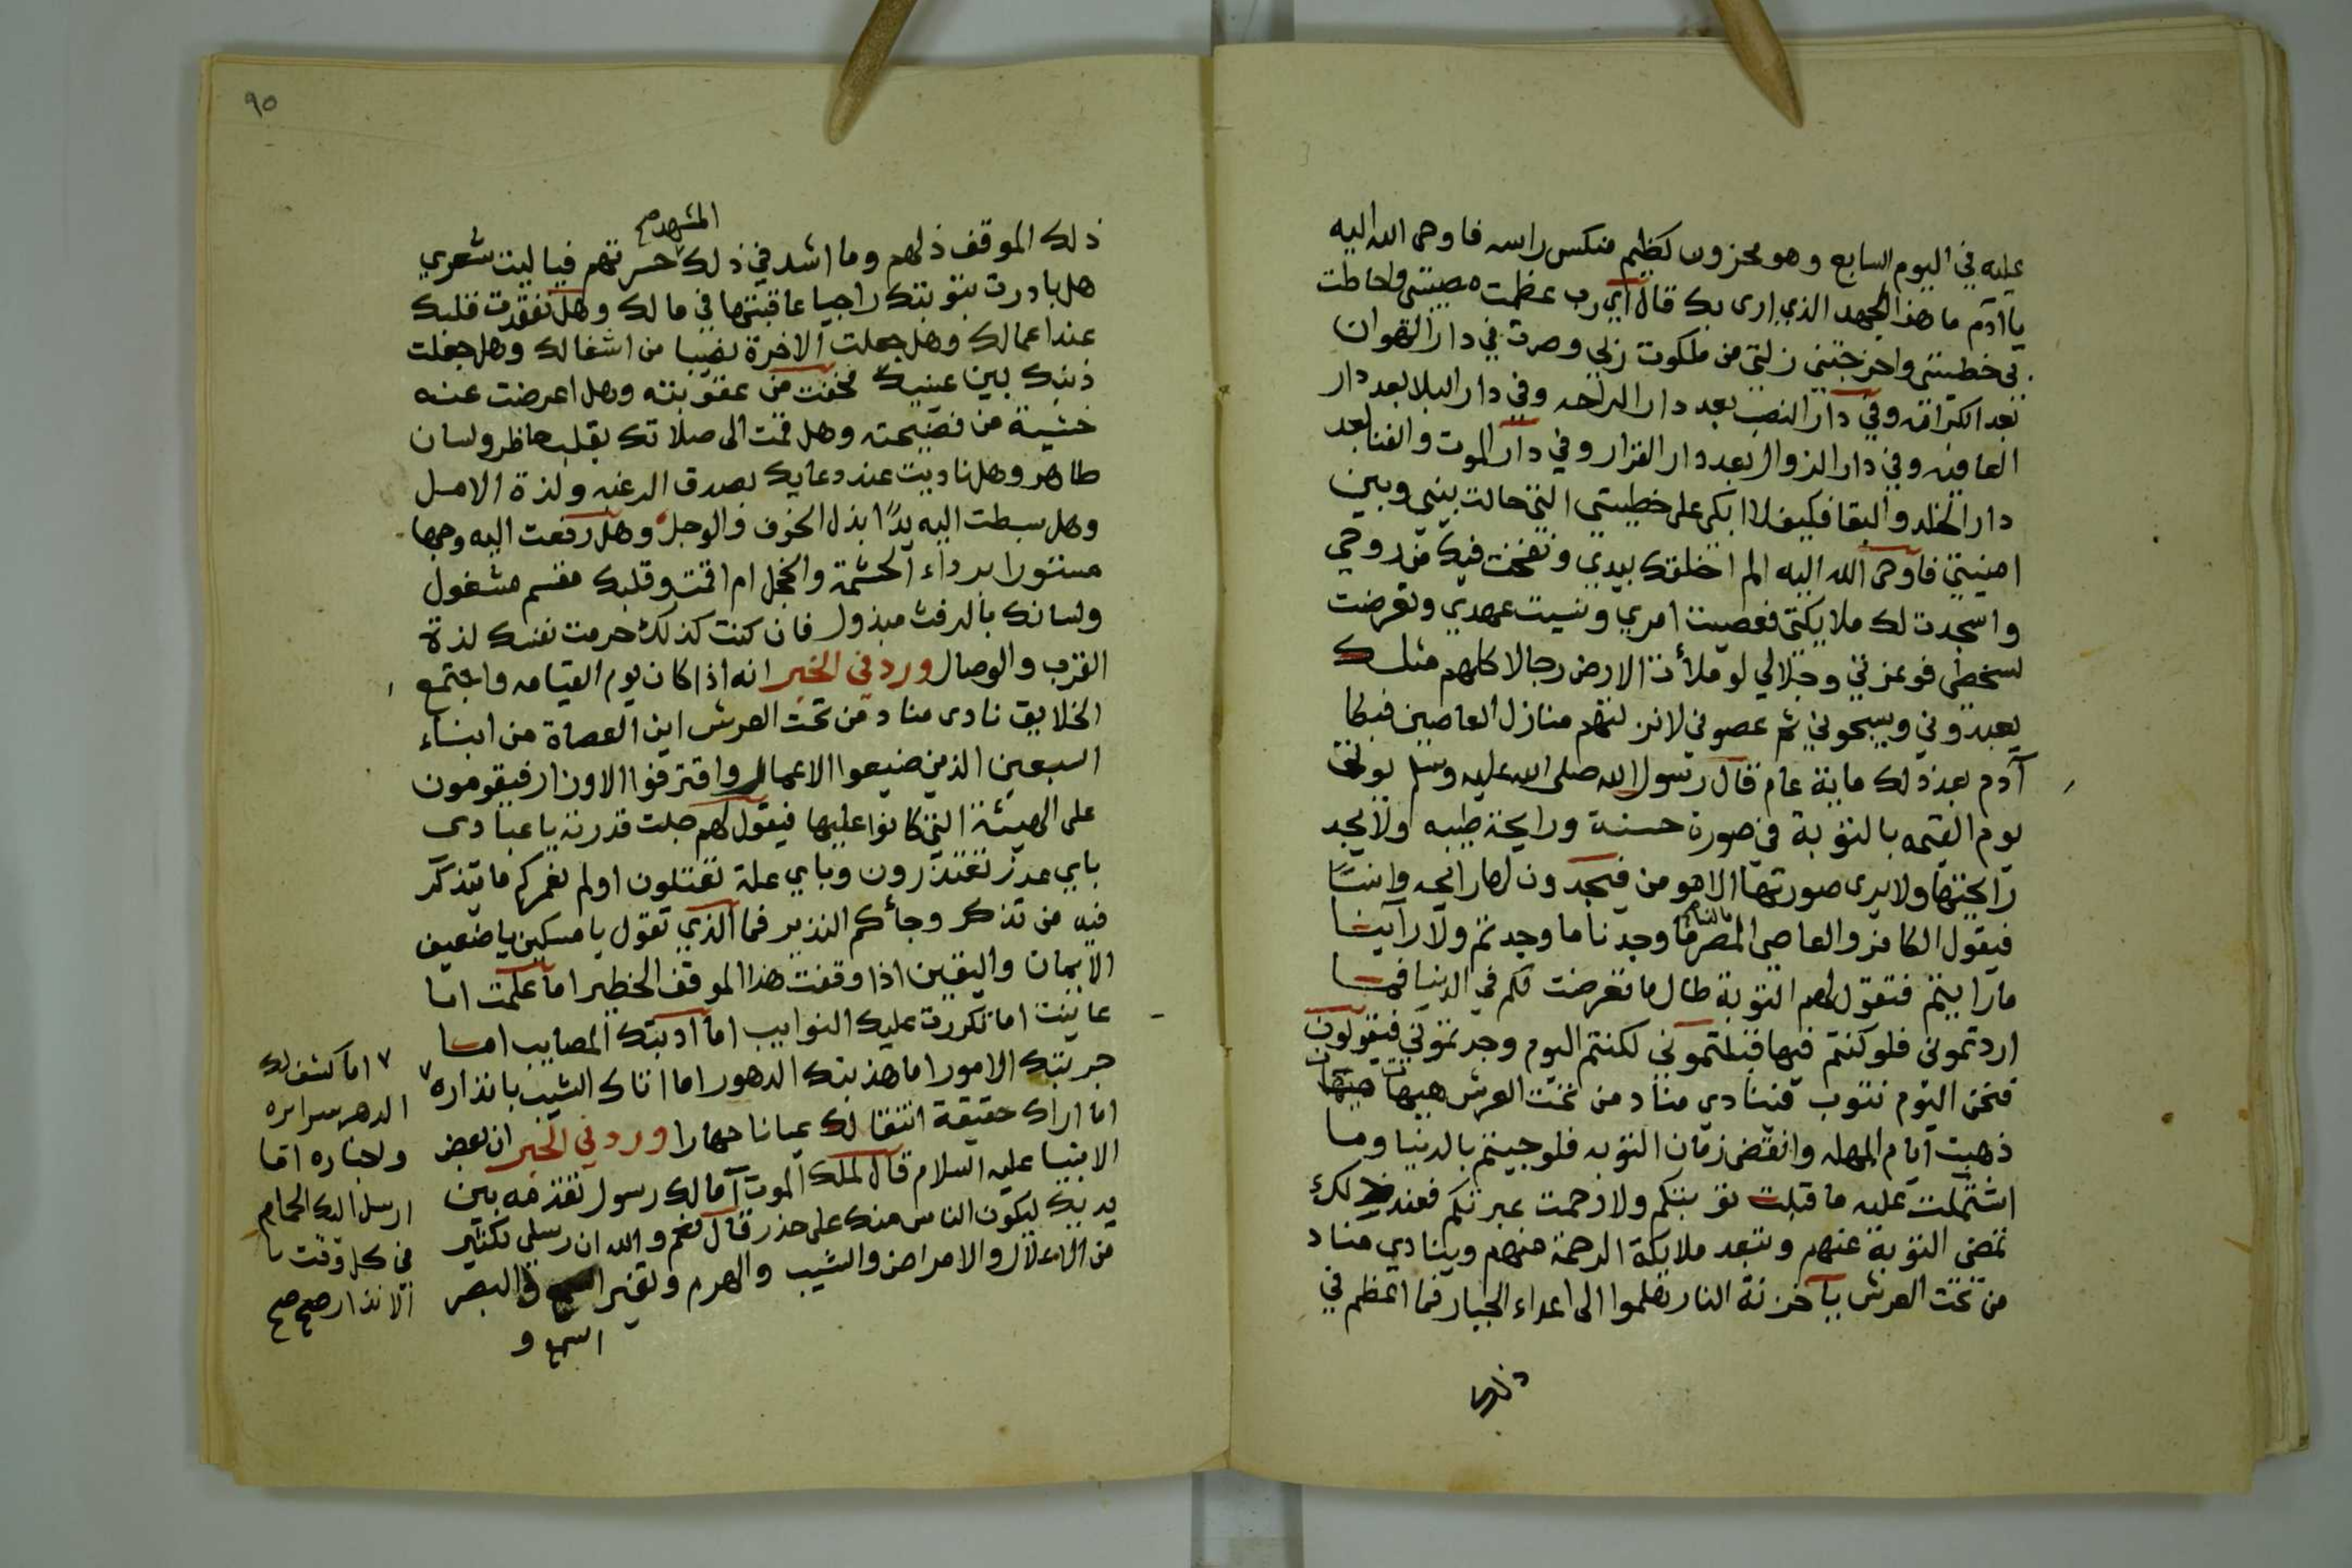 عليه في اليوم السابع وهو محزون كظيم منكس راسه فاوحى الله اليه
يا ادم ما هذا الجهد الذي ارى بك قال اي رب عظمت مصيبتي واحاطت
بي خطيئتي واخرجتني زلتي من ملكوت ربي وصرت في دار الهوان
بعد الكرامة وفي دار النصب بعد دار الراحه وفي دار البلا بعد دار
العافيه وفي دار الزوال بعد دار القرار وفي دار الموت والفنا بعد
دار الخلد والبقا فكيف لا ابكى على خطيتي التي حالت بيني وبين
امنيتي فاوحى الله اليه الم اخلقك بيدي ونفخت فيك من روحي
واسجدت لك ملايكتي فعصيت امري ونسيت عهدي وتعرضت
لسخطي فوعزتي وجلالي لو ملأت الارض رجالا كلهم مثلك
يعبدوني ويسبحوني ثم عصوني لانزلتهم منازل العاصين فبكا
آدم بعد ذلك ماية عام قال رسول الله صلى الله عليه وسلم يوتى
يوم القيمه بالتوبة في صورة حسنة ورايحة طيبه ولا يجد
رايحتها ولا يرى صورتها الا مومن فيجدون لها رايحه وانسًا
فيقول الكافر والعاصي المصر ما لنا ما وجدنا ما وجدتم ولا راينا
ما رايتم فتقول لهم التوبة طال ما تعرضت لكم في الدنيا فما
اردتموني فلو كنتم فيها قبلتموني لكنتم اليوم وجدتموني فيقولون
فنحن اليوم نتوب فينادي مناد من تحت العرش هيهات هيهات
ذهبت ايام المهله وانقضى زمان التوبه فلو جيتم بالدنيا وما
اشتملت عليه ما قبلت توبتكم ولا رحمت عبرتكم فعند ذلك
تمضي التوبة عنهم وتبعد ملايكة الرحمة منهم وينادي مناد
من تحت العرش يا خزنة النار هلموا الى اعداء الجبار فما اعظم في
ذلك
٩٥
المشهد صح
ذلك الموقف ذلهم وما اشد في ذلك حسرتهم فيا ليت شعري
هل بادرت بتوبتك راجيا عاقبتها في مالك وهل تفقدت قلبك
عند اعمالك وهل جعلت الاخرة نصيبا من اشغالك وهل جعلت
ذنبك بين عينيك فخفت من عقوبته وهل اعرضت عنه
خشية من فضيحته وهل قمت الى صلاتك بقلب حاظر ولسان
طاهر وهل ناديت عند دعايك بصدق الرغبه ولذة الامل
وهل بسطت اليه يدًا بذل الخوف والوجل وهل رفعت اليه وجها
مستورا برداء الحشمة والخجل ام اقمت وقلبك مقسم مشغول
ولسانك بالرفث مبذول فان كنت كذلك حرمت نفسك لذة
القرب والوصال ورد في الخبر انه اذا كان يوم القيامه واجتمع
الخلايق نادى مناد من تحت العرش اين العصاة من ابناء
السبعين الذين ضيعوا الاعمال واقترفوا الاوزار فيقومون
على الهيئة التي كانوا عليها فيقول لهم جلت قدرته يا عبادي
باي عذر تعتذرون وباي علة تعتلون اولم نعمركم ما يتذكر
فيه من تذكر وجأكم النذير فما الذي تقول يا مسكين يا ضعيف
الايمان واليقين اذا وقفت هذا الموقف الخطير اما علمت اما
عاينت اما تكررت عليك النوايب اما ادبتك المصايب اما
جربتك الامور اما هذبتك الدهور اما اتاك الشيب بانذاره ٧
اما اراك حقيقة انتقالك عيانا جهارا ورد في الخبر ان بعض
الانبيا عليه السلام قال لملك الموت اما لك رسول تقدمه بين
يديك ليكون الناس منك على حذر قال نعم والله ان رسلي لكثير
من الاعلال والامراض والشيب والهرم وتغير والبصر
السمع و
٧ اما كشف لك
الدهر سرايره
واخباره اما
ارسل اليك الحمام
في كل وقت
الانذار صح صح